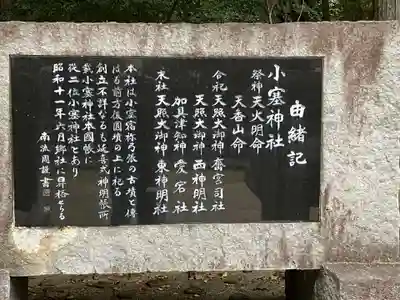 由緒記
小塞神社
祭神 天火明命
天香山命
合祀 天照大御神 斎宮司社
天照大御神 西神明社
加具津知神 愛宕社
末社 天照大御神 東神明社
本社は小塞宿祢弓張の古墳と傳
はる前方後圓墳の上に祀る
創立不詳なるも延喜式神明帳所
載小塞神社本國帳に
従二位小塞神社とあり
昭和十一年六月郷社に昇格せらる
南法周謹書